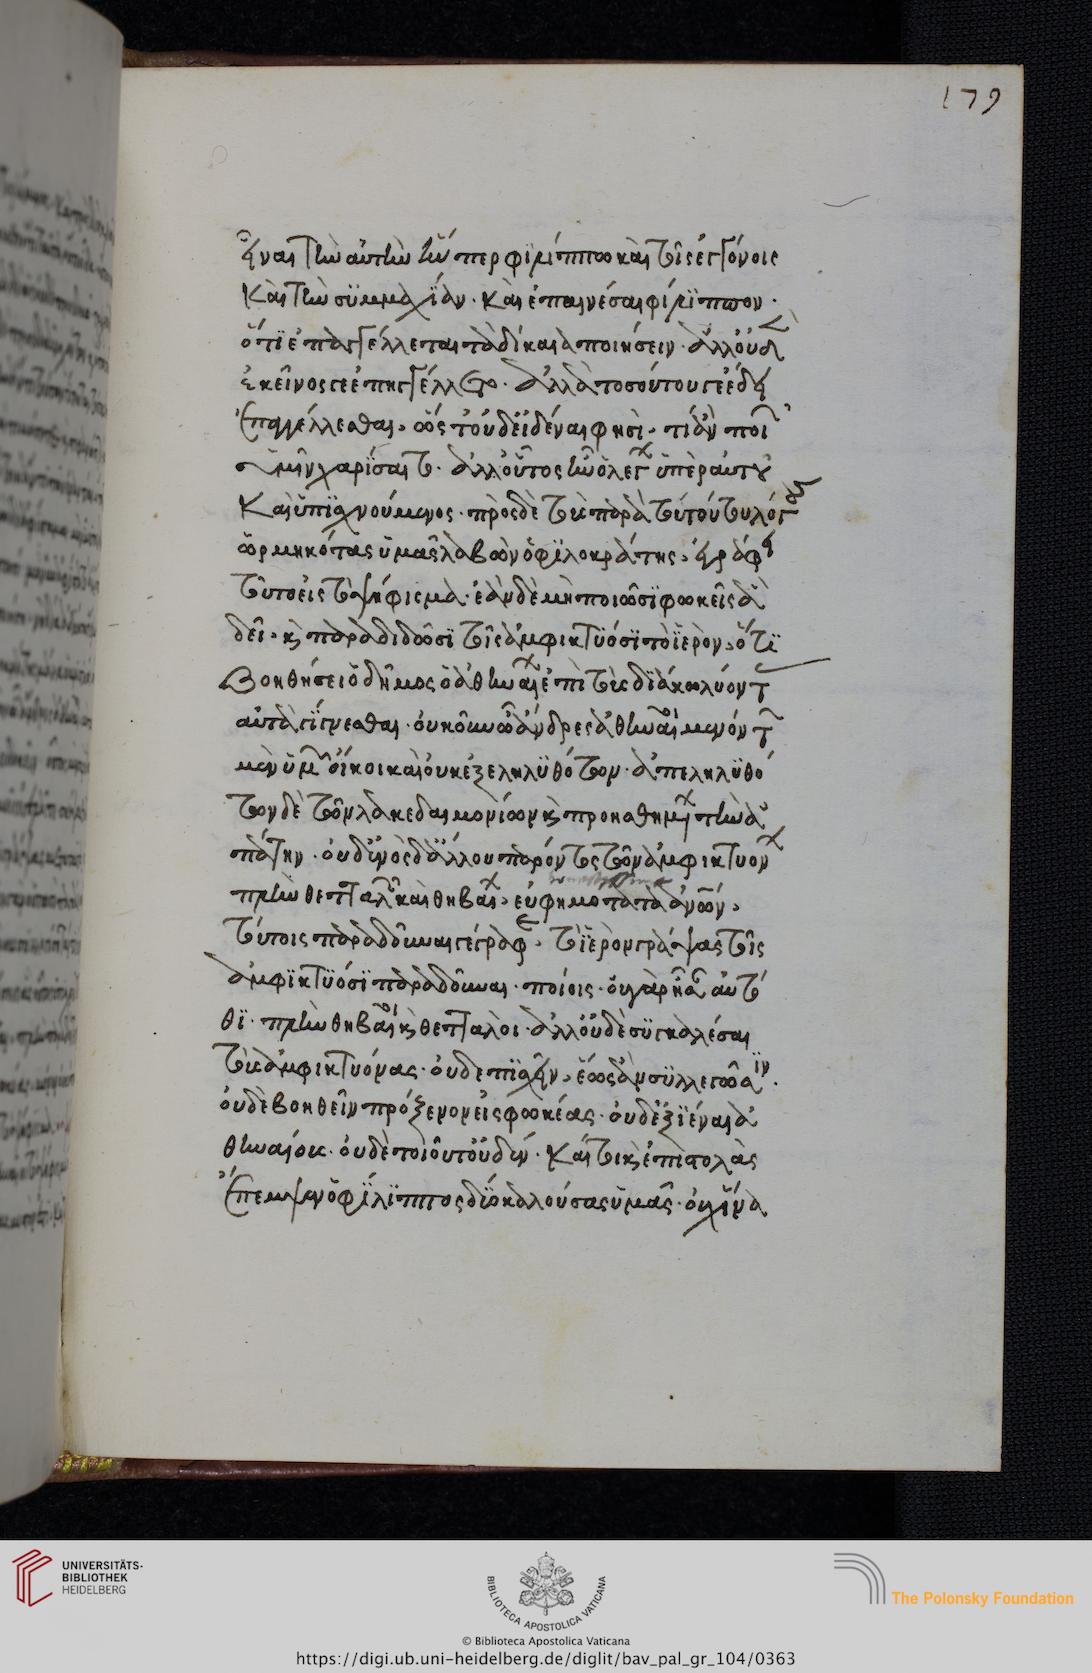 179
εἶναι τὴν αὐτὴν ἥνπερ φιλίππω καὶ τοῖς ἐγγόνοις
καὶ τὴν συμμαχίαν· καὶ ἐπαινέσαι φίλιππον·
ὅτι ἐπαγγέλλεται τὰ δίκαια ποιήσειν· ἀλλ' οὐδ
ἐκεῖνός γε ἐπηγγέλλετο· ἀλλὰ τοσούτου γε ἔδει
ἐπαγγέλλεσθαι, ὡς τ' οὐδ' εἰδέναι φησὶ, τί ἂν ποι
ὑμῖν χαρίσαιτο· ἀλλ' οὗτος ἦν ὁ λέγων ὑπὲρ αὐτοῦ
καὶ ὑπισχνούμενος· πρὸς δὲ τοὺς παρὰ τούτου τοὺς λόγους
ὡρμηκότας ὑμᾶς λαβὼν ὁ φιλοκράτης, ἐγράφει
τοῦτο εἰς τὸ ψήφισμα· ἐὰν δὲ μὴ ποιῶσι φωκεῖς ἃ
δεῖ, καὶ παραδιδῶσι τοῖς ἀμφικτύοσι τὸ ἱερὸν, ὅτι
βοηθήσει ὁ δῆμος ὁ ἀθηναίων ἐπὶ τοὺς διακωλύοντας
αὐτὰ γίγνεσθαι· οὐκοῦν ὦ ἄνδρες ἀθηναῖοι μενόντων
μὲν ὑμῶν οἴκοι καὶ οὐκ ἐξεληλυθότων· ἀπεληλυθό
των δὲ τῶν λακεδαιμονίων καὶ προῃσθημένων τὴν ἀ
πάτην· οὐδενὸς δ' ἄλλου παρόντος τῶν ἀμφικτυόνων
πλὴν θετταλῶν καὶ θηβαίων, εὐφημότατα ἀν
τούτοις παραδοῦναι γέγραφε, τὸ ἱερὸν γράψας τοῖς
ἀμφικτύοσι παραδοῦναι· ποίοις· οὐ γὰρ ἦσαν αὐτό
θι· πλὴν θηβαῖοι καὶ θετταλοὶ· ἀλλ' οὐδὲ συγκαλέσαι
τοὺς ἀμφικτυόνας· οὐδ' ἐπισχεῖν, ἕως ἂν συλλεγῶσιν·
οὐδὲ βοηθεῖν πρόξενον εἰς φωκέας· οὐδ' ἐξιέναι ἀ
θηναίους· οὐδὲ τοιοῦτ' οὐδέν· καίτοι καὶ ἐπιστολὰς
ἔπεμψεν ὁ φίλιππος δύο καλούσας ὑμᾶς· οὐχ ἵνα
UNIVERSITÄTS-
BIBLIOTHEK
HEIDELBERG
BIBLIOTECA APOSTOLICA VATICANA
The Polonsky Foundation
© Biblioteca Apostolica Vaticana
https://digi.ub.uni-heidelberg.de/diglit/bav_pal_gr_104/0363